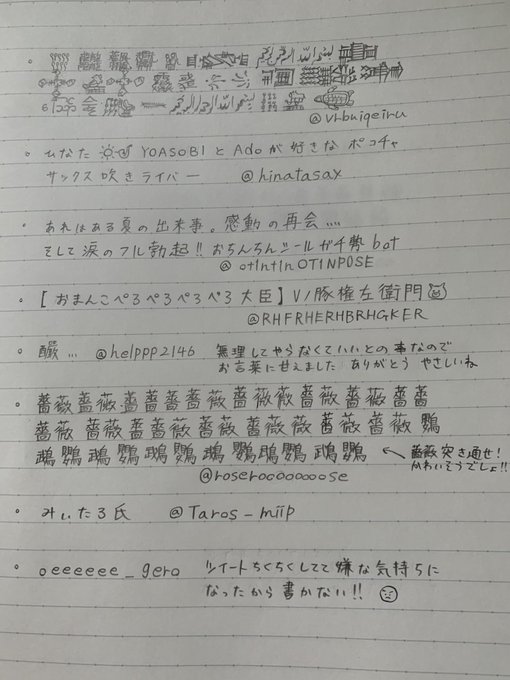 ﷽
﷽
@vrbuiqeiru
ひなた YOASOBIとAdoが好きな ポコチャ
サックス吹きライバー @hinatasax
あれはある夏の出来事。感動の再会....
そして涙のフル勃起!! おちんちんシールガチ勢 bot
@otintinOTINPOSE
【おまんこぺろぺろぺろぺろ大臣】V/豚権左衛門🐷
@RHFRHERHBRHGKER
... @helppp2146 無理してやらなくていいとの事なので
お言葉に甘えました ありがとう やさしいね
薔薇薔薇薔薔薔薔薇薔薇薇薔薇薔薇薔薔
薔薇 薔薇薔薇 薔薇 薔薇 薔薇 薔薇 鸚
鵡鸚鵡鸚鵡鸚鵡鸚鵡鸚鵡鸚 ← 薔薇突き通せ!
かわいそうでしょ!!
@roseroooooooose
みぃたろ氏 @Taros_miip
oeeeeee_gero ツイートちくちくしてて嫌な気持ちに
なったから書かない!!